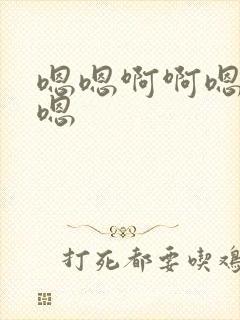 嗯嗯啊啊嗯
嗯
打死都要喫鸡